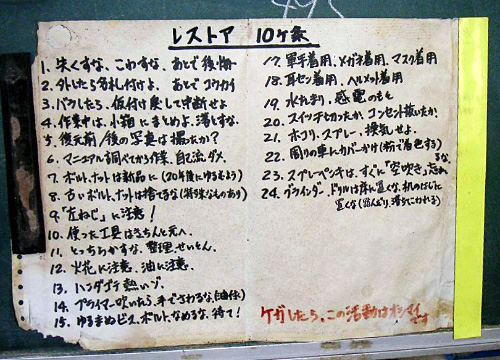 レストア 10ヶ条
1. 失くすな、こわすな、あとで後悔
2. 外したら名札付けよ、あとでコウカイ
3. バラしたら、仮付け戻して中断せよ
4. 作業中は、小箱にまとめよ、潰すな
5. 復元前/後の写真は撮ったか?
6. マニュアル調べてから作業、自己流ダメ
7. ボルト、ナットは新品に(20年後にゆるむよう)
8. 古いボルト、ナットは捨てるな(特殊なものあり)
9. 「左ねじ」に注意!
10. 使った工具はきちんと元へ
11. とっちらかすな、整理せいとん
12. 火花に注意、油に注意
13. ハンダゴテ熱いゾ
14. プライマー吹いたら、手でさわるな(油体)
15. ゆるまぬビス、ボルト、なめるな、待て!
17. 軍手着用、メガネ着用、マスク着用
18. 耳セン着用、ヘルメット着用
19. 水たまり、感電のもと
20. スイッチ切ったか、コンセント抜いたか
21. ホコリ、スプレー、換気せよ
22. 周りの車にカバーかけ(粉で着色する)
23. スプレーペンキは、すぐに「空吹き」忘れるな
24. グラインダー、ドリルは床に置くな、机のはじに
置くな(踏んだり、落ちてこわれる)
ケガしたら、この活動はオシマイ
です